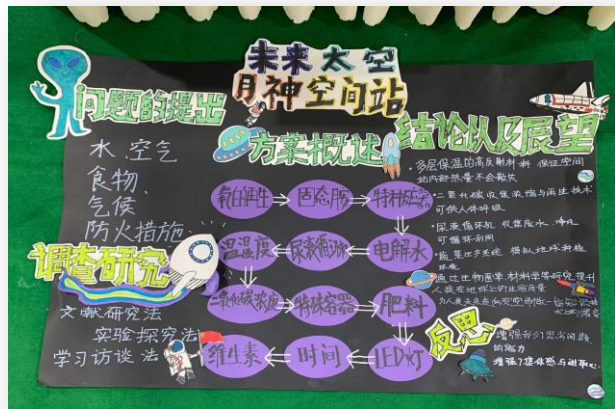 未来太空
月神空间站
问题的提出
水、空气
食物、
气候
防火措施
调查研究
文献研究法
实验探究法
学习访谈法
方案概述
固态胺
温湿度
尿素循环
电解水
二氧化碳浓度
特殊容器
肥料
维生素
时间
LED灯
结论以及展望
·多层保温的高反射材料 保证空间
站内部热量不会散失
·二氧化碳收集浓缩与再生技术
可供人体呼吸
·尿液循环机 收集废水、净化
可循环利用
·蔬菜生产系统 模拟地球种植
环境
反思
增强我们思考问题
的能力